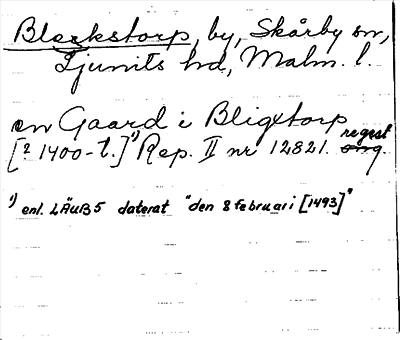 Bleckstorp, by, Skårby sn,
Ljunits hd, Malm. l.
en Gaard i Bligxtorp
[? 1400-t.]¹) Rep. II nr 12821. regest orig.
¹) enl. LÄUB5 daterat "den 8 februari [1493]"